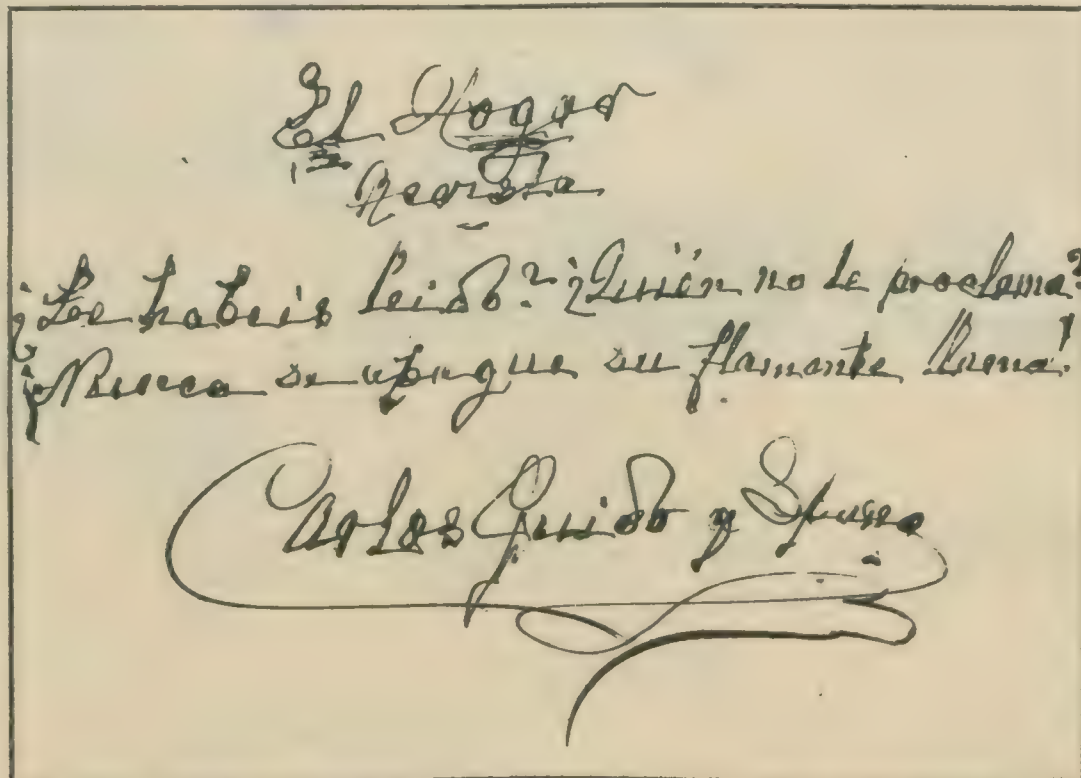 El Hogar
Revista
¿Le habeis leido? ¿Quién no le proclama?
¡Nunca se apague su flamante llama!
Carlos Guido y Spano